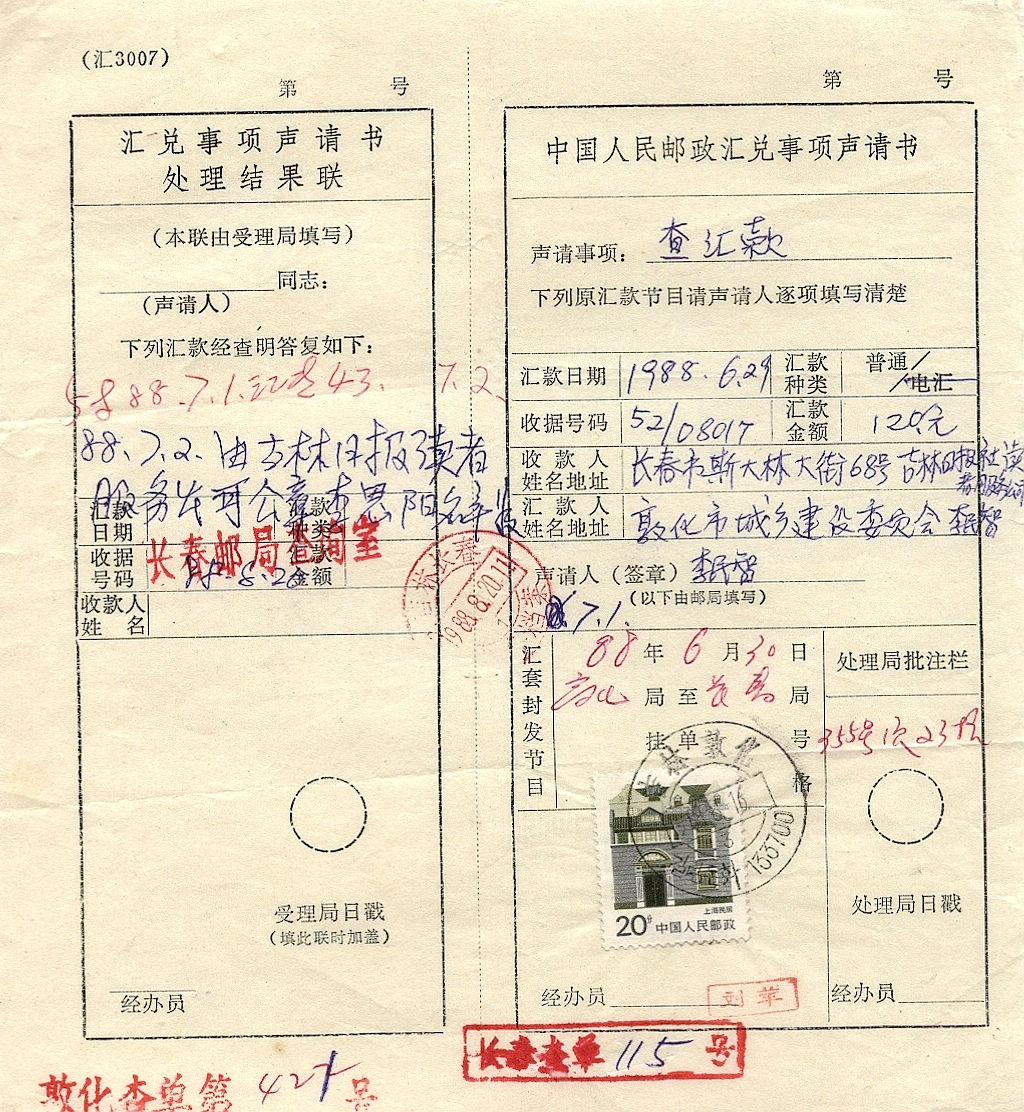 (汇3007)
第 号
汇兑事项声请书
处理结果联
(本联由受理局填写)
同志:
(声请人)
下列汇款经查明答复如下:
88.7.1. 43. 7.2.
88.7.2.由吉林日报读者
服务
汇款日期
汇款种类
长春邮局查询室
收据号码
汇款金额
收款人姓名
长春
1988.8.20.11
受理局日戳
(填此联时加盖)
经办员
敦化查单第 421 号
第 号
中国人民邮政汇兑事项声请书
声请事项: 查汇款
下列原汇款节目请声请人逐项填写清楚
汇款日期 1988.6.29 汇款种类 普通/电汇
收据号码 52/08017 汇款金额 120元
收款人姓名地址 长春市斯大林大街68号吉林日报社读者服务公司
汇款人姓名地址 敦化市城乡建设委员会 李民智
声请人(签章) 李民智
(以下由邮局填写)
7.1.
汇套封发节目
88年6月30日
敦化局至长春局
挂单 号
格
处理局批注栏
355号次23格
吉林敦化
133700
20分 中国人民邮政
上海民居
处理局日戳
经办员
经办员
长春查单 115 号